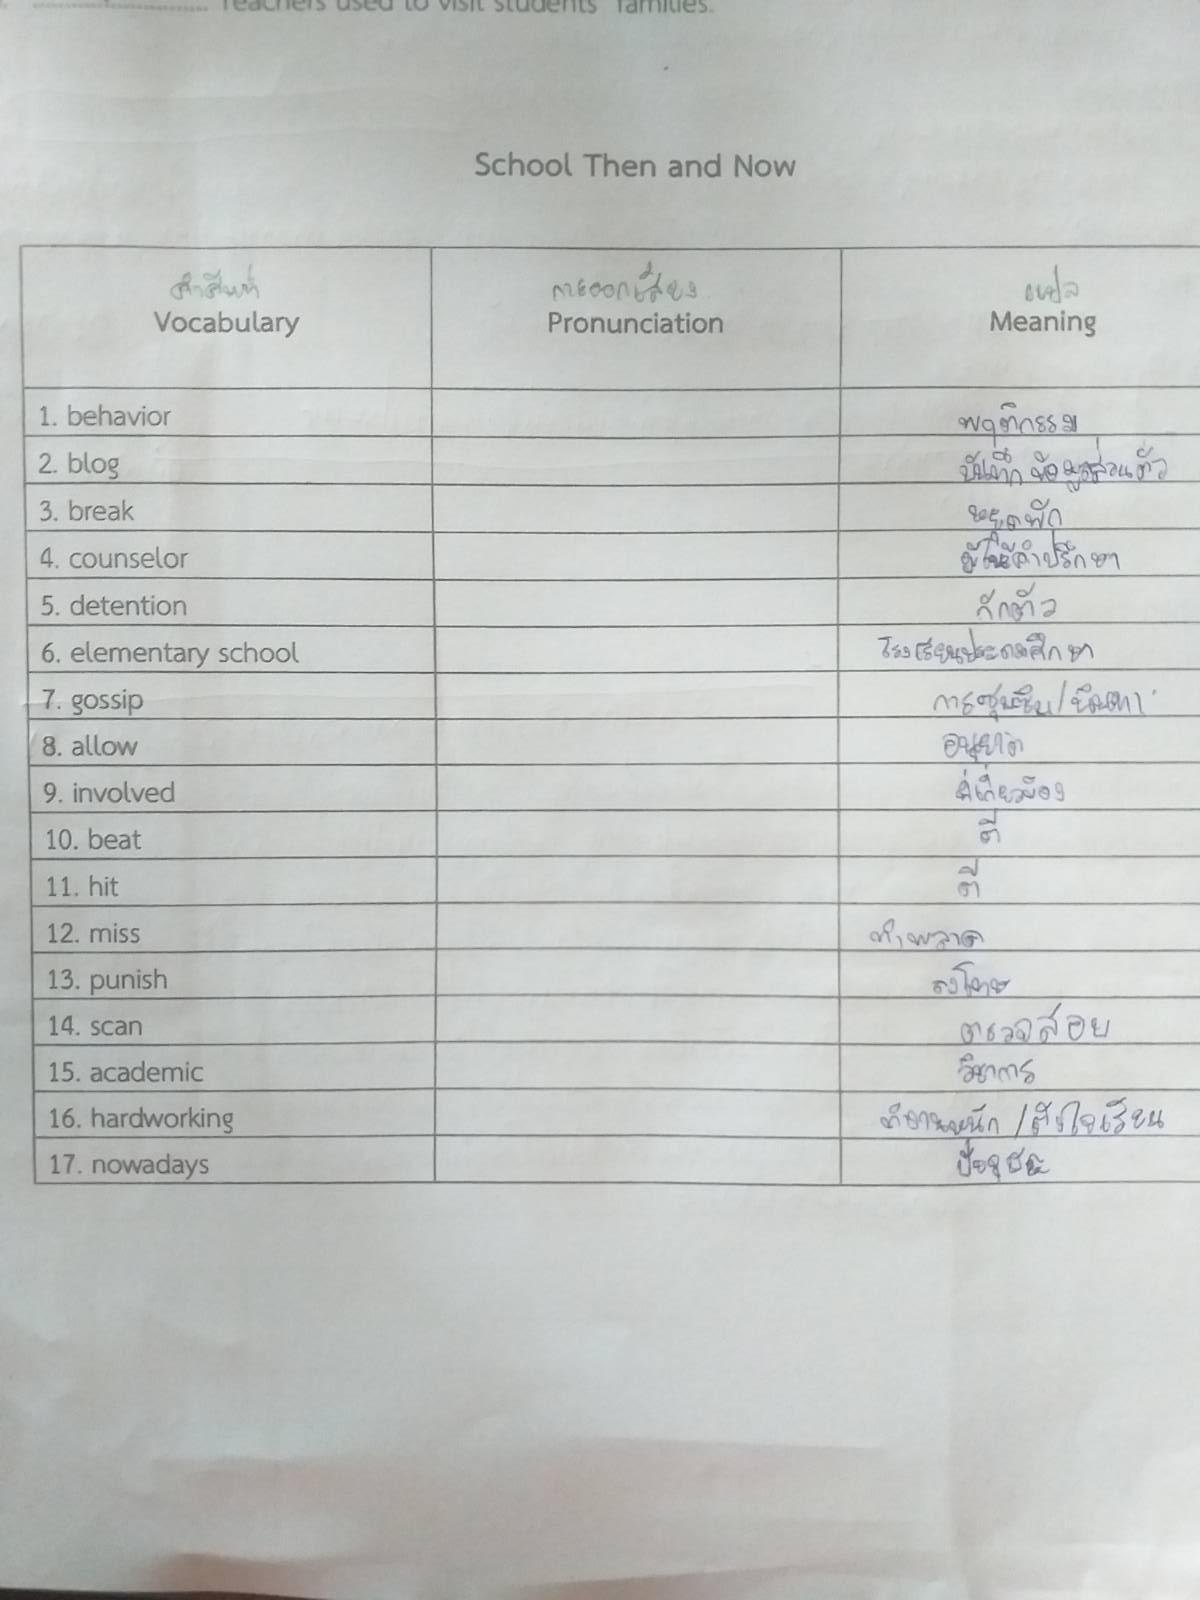 Teachers used to visit students' families.
School Then and Now
คำศัพท์ การออกเสียง แปล
Vocabulary Pronunciation Meaning
1. behavior พฤติกรรม
2. blog บันทึกข้อมูลส่วนตัว
3. break หยุดพัก
4. counselor ผู้ให้คำปรึกษา
5. detention กักตัว
6. elementary school โรงเรียนประถมศึกษา
7. gossip การซุบซิบ/นินทา
8. allow อนุญาต
9. involved ที่เกี่ยวข้อง
10. beat ตี
11. hit ตี
12. miss ทำพลาด
13. punish ลงโทษ
14. scan ตรวจสอบ
15. academic วิชาการ
16. hardworking ทำงานหนัก/ตั้งใจเรียน
17. nowadays